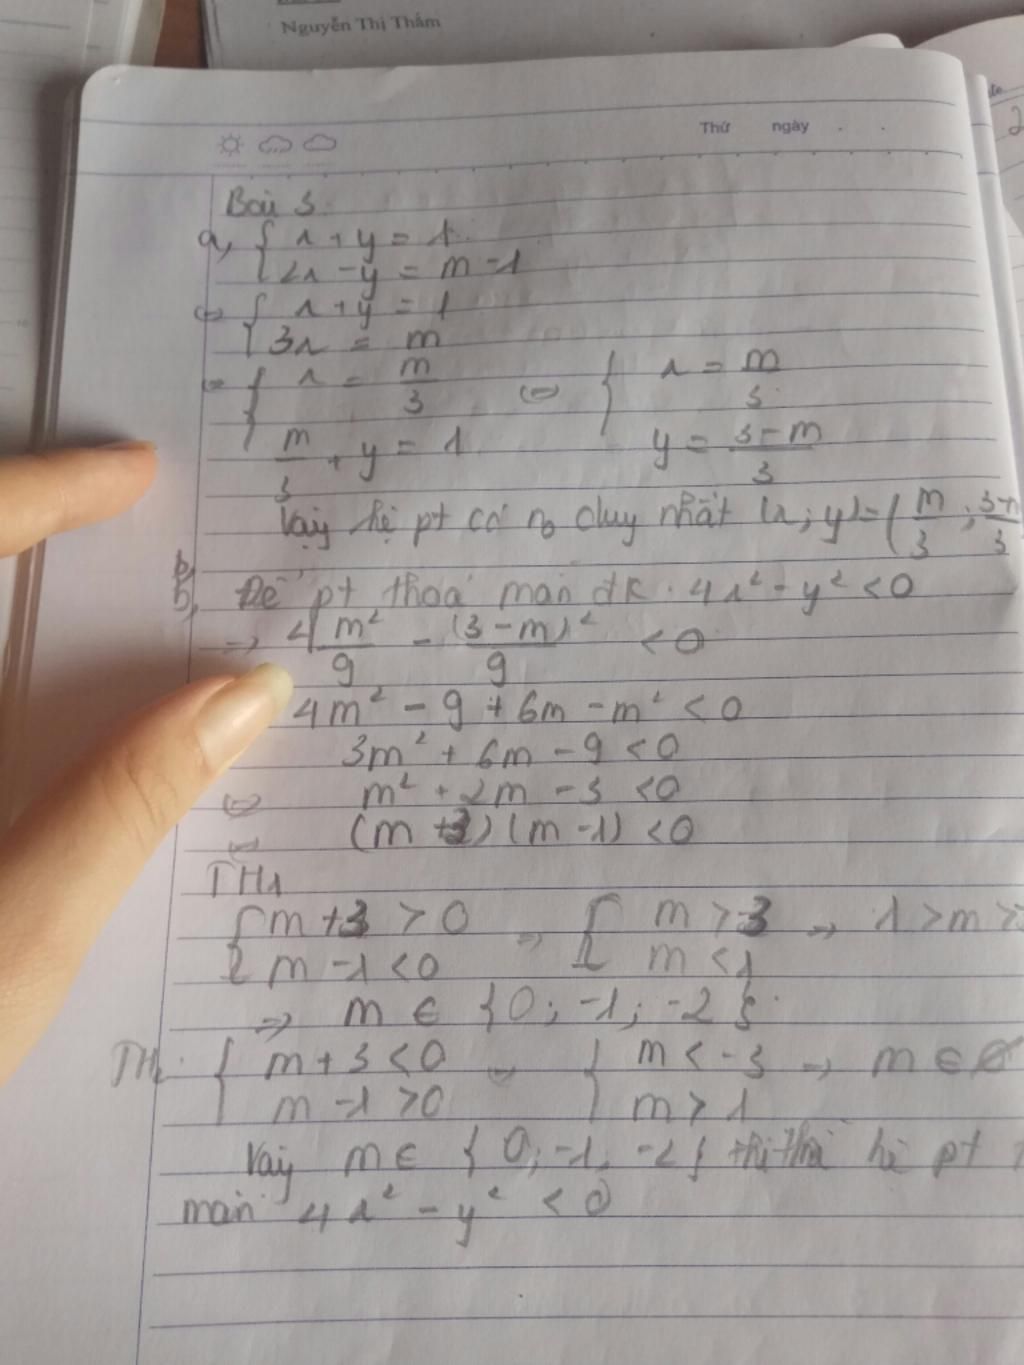 Nguyễn Thị Thắm
Thứ ngày
Bài 3:
a, { x + y = 1
2x - y = m - 1
<=> { x + y = 1
3x = m
<=> { x = m/3 <=> { x = m/3
m/3 + y = 1 y = (3-m)/3
Vậy hệ pt có no duy nhất (x; y) = (m/3; 3-m/3
b,
b, Để pt thoả mãn đk: 4x² - y² < 0
=> 4m²/9 - (3-m)²/9 < 0
4m² - 9 + 6m - m² < 0
3m² + 6m - 9 < 0
<=> m² + 2m - 3 < 0
<=> (m + 3)(m - 1) < 0
TH1
{ m + 3 > 0 => { m > -3 => 1 > m >
m - 1 < 0 m < 1
=> m ∈ {0; -1; -2}
TH2: { m + 3 < 0 <=> { m < -3 => m ∈ ∅
m - 1 > 0 m > 1
Vậy m ∈ {0; -1; -2} thì hệ pt
mãn 4x² - y² < 0